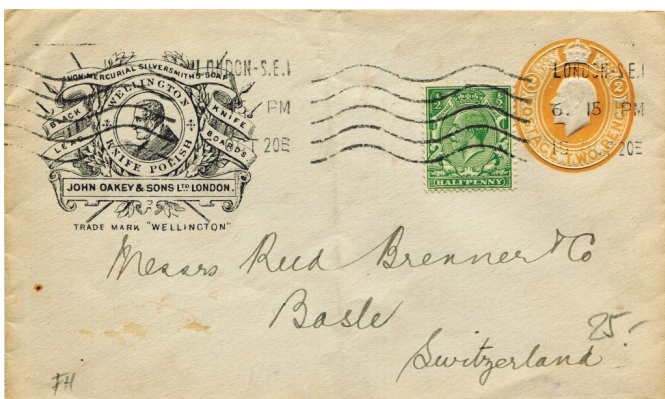 NON-MERCURIAL SILVERSMITHS SOAP
WELLINGTON
BLACK LEAD
KNIFE BOARDS
KNIFE POLISH
JOHN OAKEY & SONS LTD LONDON.
TRADE MARK "WELLINGTON"
LONDON-S.E.1
PM
20E
1/2
1/2
HALFPENNY
LONDON-S.E.1
6. 15 PM
20E
2
2
POSTAGE TWO PENCE
Messrs
Brenner & Co
Basle
Switzerland
25.-
FH